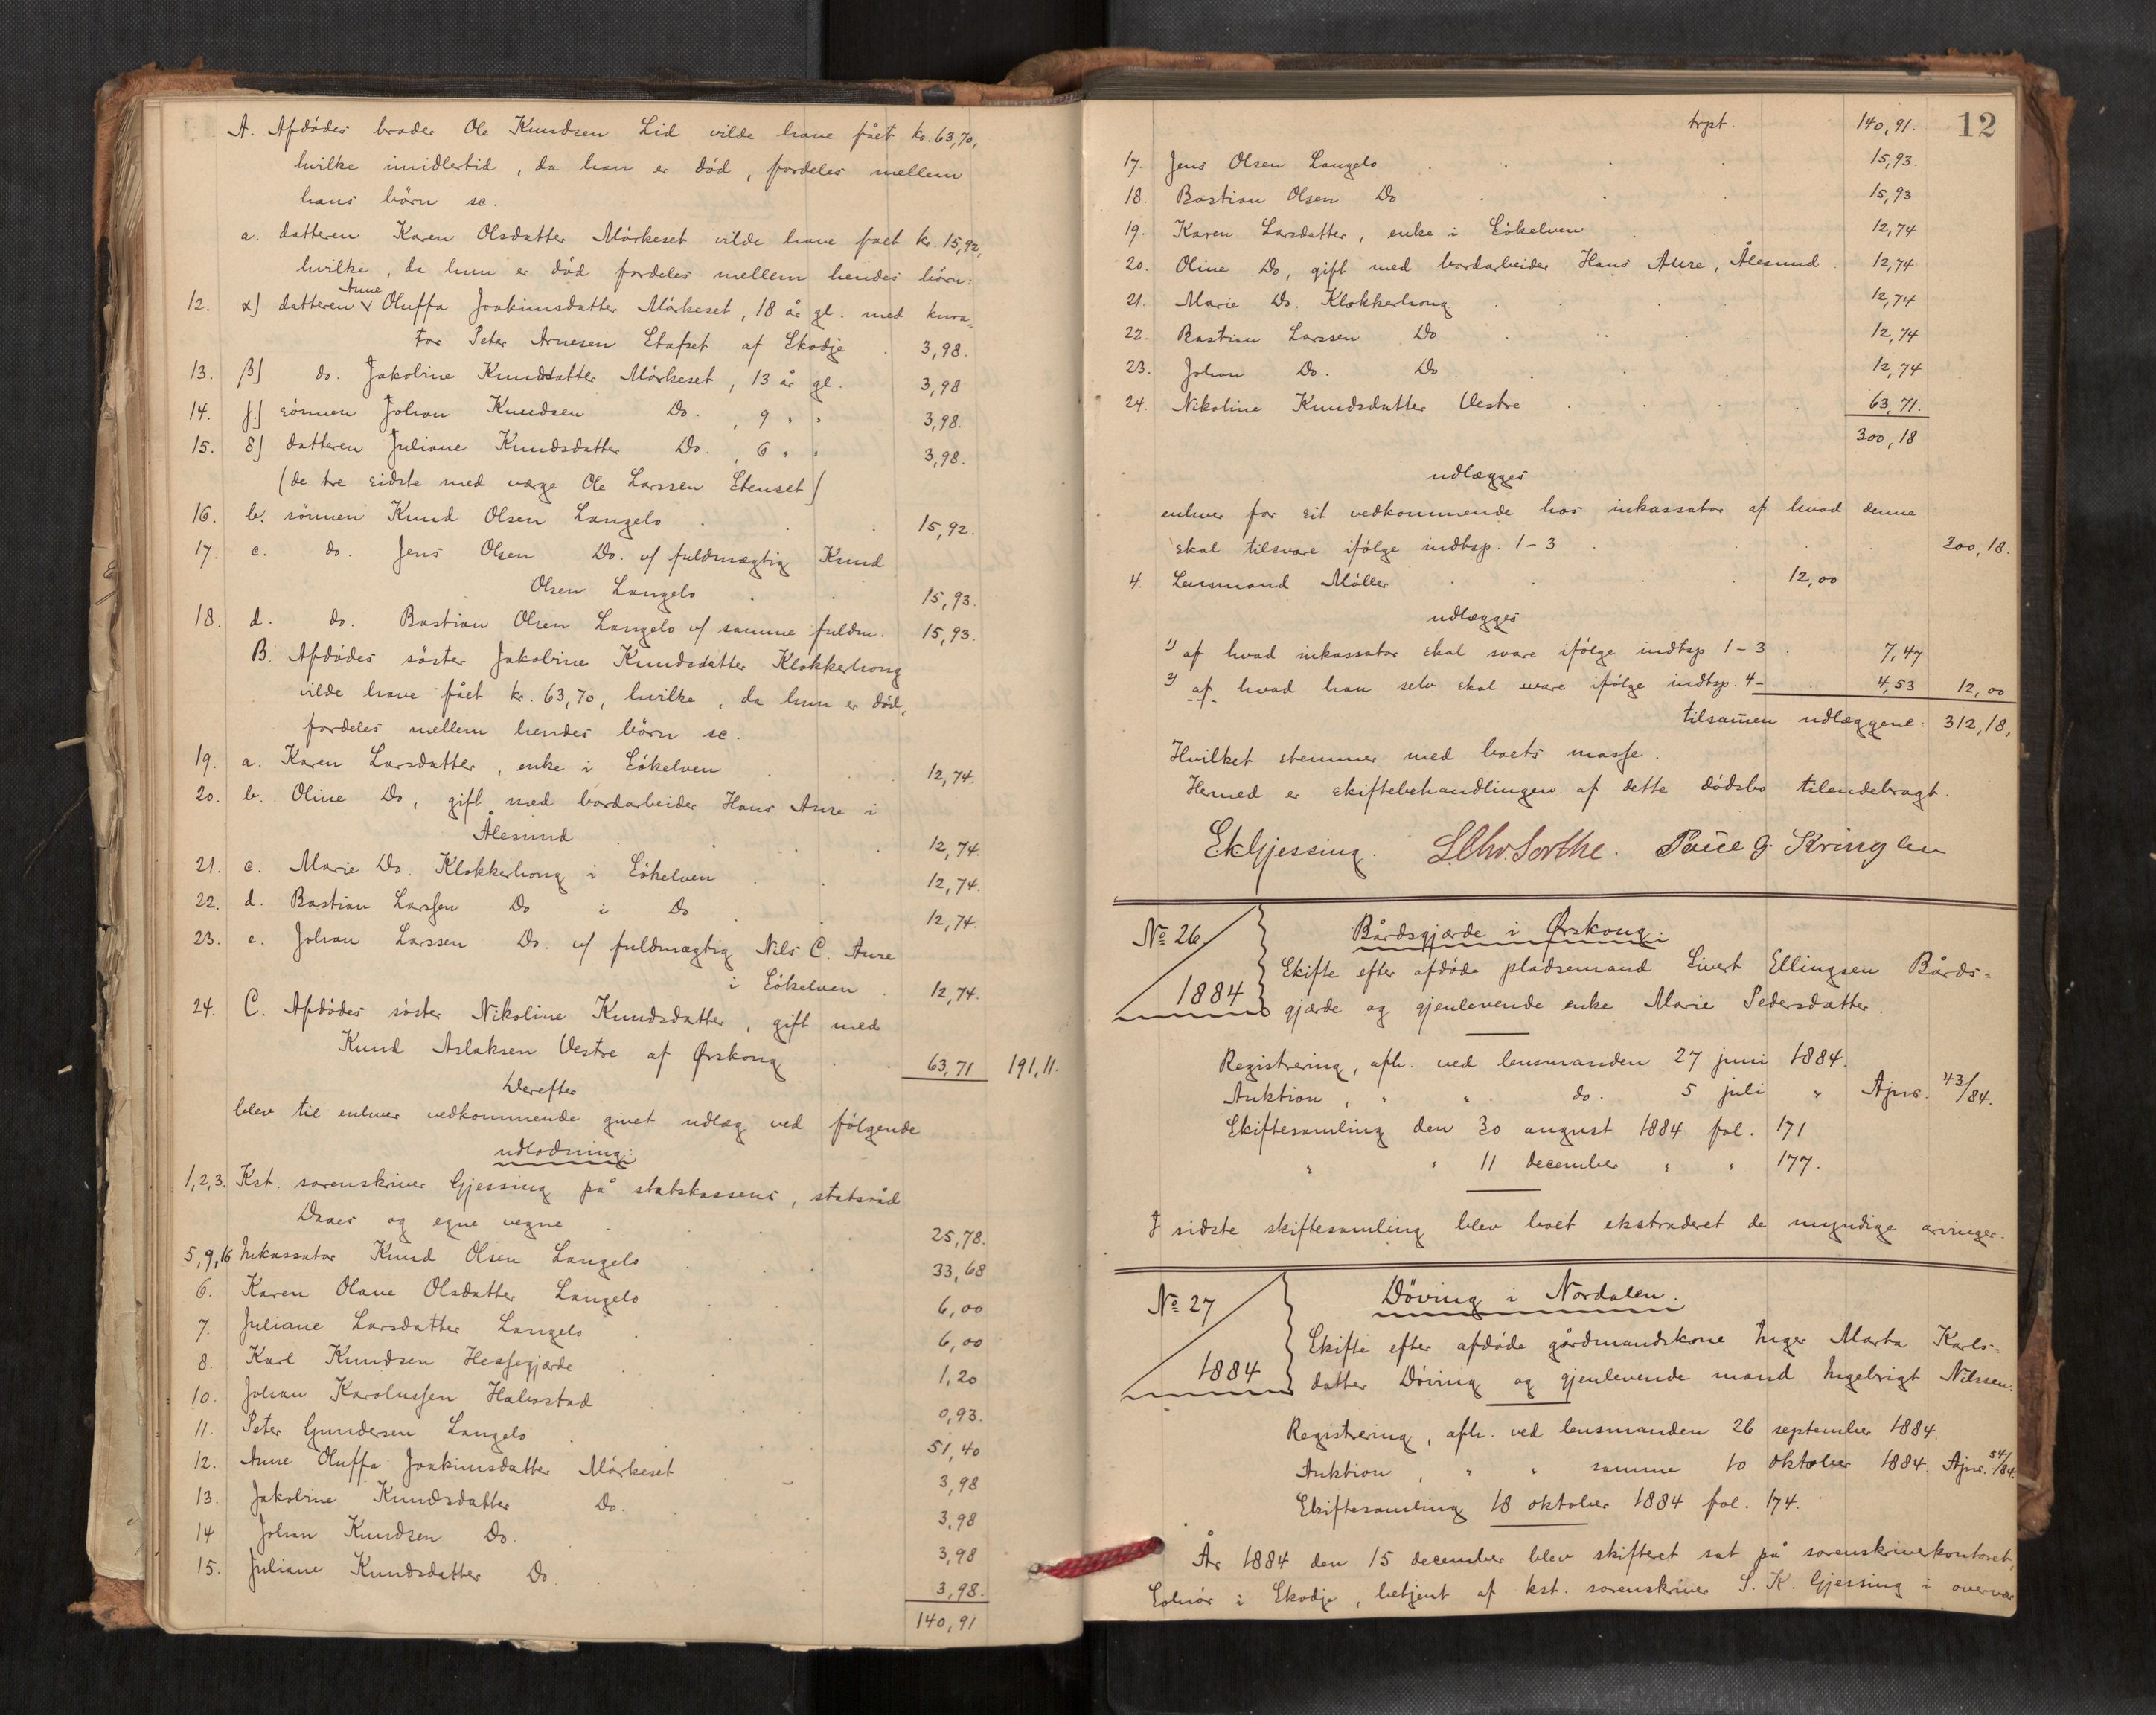 A. Afdødes broder Ole Knudsen Lid vilde have fået kr. 63,70,
hvilke imidlertid, da han er død, fordeles mellem
hans børn sc.
a. datteren Karen Olsdatter Mørkeset vilde have faaet kr. 15,92,
hvilke, da hun er død fordeles mellem hendes børn:
12. α) datteren Anne Oluffa Joakimsdatter Mørkeset, 18 år gl. med kura=
tor Peter Arnesen Stafset af Skodje . 3,98.
13. β) do. Jakobine Knudsdatter Mørkeset, 13 år gl. 3,98
14. γ) sønnen Johan Knudsen Do. , 9 " " 3,98.
15. δ) datteren Juliane Knudsdatter Do. , 6 " " 3,98.
(de tre sidste med værge Ole Larssen Stenset)
16. b. sønnen Knud Olsen Langelo . . . 15,92.
17. c. do. Jens Olsen Do. v/ fuldmægtig Knud
Olsen Langelo . . 15,93.
18. d. do. Bastian Olsen Langelo v/ samme fuldm. 15,93.
B. Afdødes søster Jakobine Knudsdatter Klokkerhoug
vilde have fået kr. 63,70, hvilke, da hun er død,
fordeles mellem hendes børn sc.
19. a. Karen Larsdatter, enke i Søkelven . . . 12,74.
20. b. Oline Do, gift med bordarbeider Hans Aure i
Ålesund . . . 12,74.
21. c. Marie Do. Klokkerhoug i Søkelven . . 12,74.
22. d. Bastian Larssen Do i Do . . 12,74.
23. e. Johan Larssen Do. v/ fuldmægtig Nils C. Aure
i Søkelven . 12,74.
24. C. Afdødes søster Nikoline Knudsdatter, gift med
Knud Aslaksen Vestre af Ørskoug . . 63,71 191,11.
Derefter
blev til enhver vedkommende givet udlæg ved følgende
udlodning:
1,2,3. Kst. sorenskriver Gjessing på statskassens, statsråd
Daaes og egne vegne . . 25,78.
5,9,16 Inkassator Knud Olsen Langelo . . 33,68
6. Karen Olave Olsdatter Langelo . . 6,00
7. Juliane Larsdatter Langelo . . . 6,00
8. Karl Knudsen Hessegjærde . . . 1,20
10. Johan Karolussen Habostad . . . 0,93.
11. Peter Gundersen Langelo . . . 51,40
12. Anne Oluffa Joakimsdatter Mørkeset - . 3,98
13. Jakobine Knudsdatter Do. . . 3,98
14 Johan Knudsen Do. . . . 3,98
15. Juliane Knudsdatter Do. . . . 3,98.
140,91
trpt. 140,91. 12
17. Jens Olsen Langelo . . . . 15,93.
18. Bastian Olsen Do . . . 15,93
19. Karen Larsdatter, enke i Søkelven . . 12,74
20. Oline Do, gift med bordarbeider Hans Aure, Ålesund 12,74
21. Marie Do. Klokkerhoug . . . 12,74
22. Bastian Larssen Do . . . 12,74
23. Johan Do. Do . . . . 12,74
24. Nikoline Knudsdatter Vestre . . . . 63,71.
300,18
udlægges
enhver for sit vedkommende hos inkassator af hvad denne
skal tilsvare ifølge indtsp. 1-3 . . . 300,18.
4. Lensmand Møller . . . 12,00
udlægges
1) af hvad inkassator skal svare ifølge indtsp 1-3 . 7,47
2) af hvad han selv skal svare ifølge indtsp. 4- . 4,53 12,00
tilsammen udlæggene: 312,18,
Hvilket stemmer med boets masse.
Hermed er skiftebehandlingen af dette dødsbo tilendebragt.
SKGjessing. L.Chr.Sorthe. Paul G. Kringlen
No 26. Bårdsgjærde i Ørskoug.
Skifte efter afdøde pladsemand Sivert Ellingsen Bårds=
1884 gjærde og gjenlevende enke Marie Pedersdatter.
Registrering, afh. ved lensmanden 27 juni 1884.
Auktion, " " do. 5 juli " Ajnr. 43/84.
Skiftesamling den 30 august 1884 fol. 171
" " 11 december " " 177.
I sidste skiftesamling blev boet ekstraderet de myndige arvinger.
No 27 Døving i Nordalen.
Skifte efter afdøde gårdmandskone Inger Marta Karls=
1884 datter Døving og gjenlevende mand Ingebrigt Nilssen.
Registrering, afh. ved lensmanden 26 september 1884.
Auktion, " " samme 10 oktober 1884. Ajnr. 54/84.
Skiftesamling 18 oktober 1884 fol. 174.
År 1884 den 15 december blev skifteret sat på sorenskriverkontoret,
Solnør i Skodje, betjent af kst. sorenskriver S. K. Gjessing i overvær